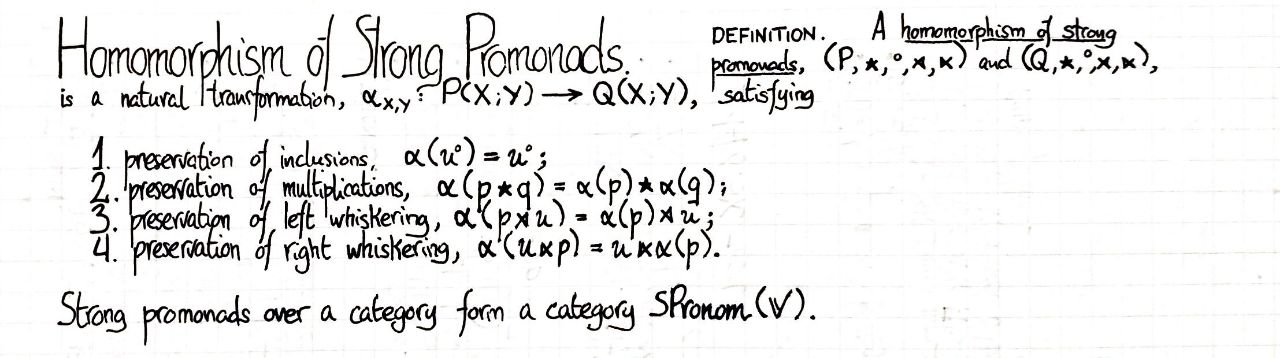 Homomorphism of Strong Promonads.
DEFINITION. A homomorphism of strong
promonads, (P, ⋆, °, ⋊, ⋉) and (Q, ⋆, °, ⋊, ⋉),
is a natural transformation, α_{X,Y}: P(X;Y) → Q(X;Y), satisfying
1. preservation of inclusions, α(u°) = u°;
2. preservation of multiplications, α(p⋆q) = α(p)⋆α(q);
3. preservation of left whiskering, α(p⋊u) = α(p)⋊u;
4. preservation of right whiskering, α(u⋉p) = u⋉α(p).
Strong promonads over a category form a category SPronom(𝕍).